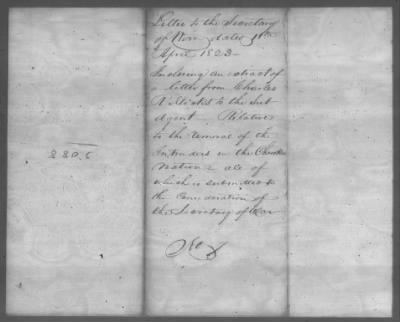 Letter to the Secretary
of War dated 11th
April 1823
Inclosing an extract of
a letter from Charles
to the Sub
Agent Relative
to the removal of the
Intruders in the Cherokee
Nation & all of
which is submitted to
the Consideration of
the Secretary of War
2806
No